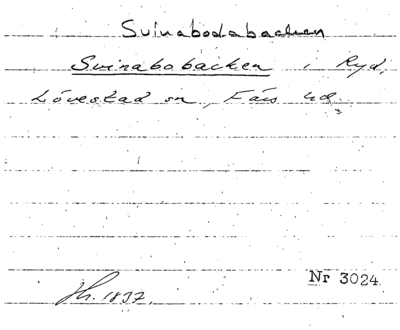 Svinabodabacken
Svinabobacken i Ryd,
Lövestad sn, Färs hd.
Nr 3024
1897.